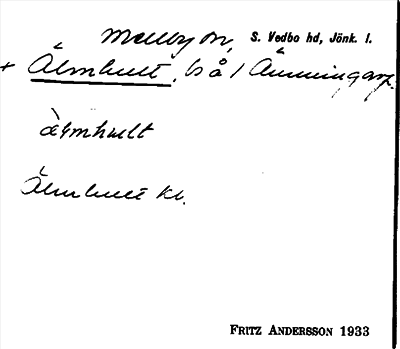 Mellby sn, S. Vedbo hd, Jönk. l.
+ Älmhult, bå i Änningarp
älmhult
Älmhult kb.
FRITZ ANDERSSON 1933